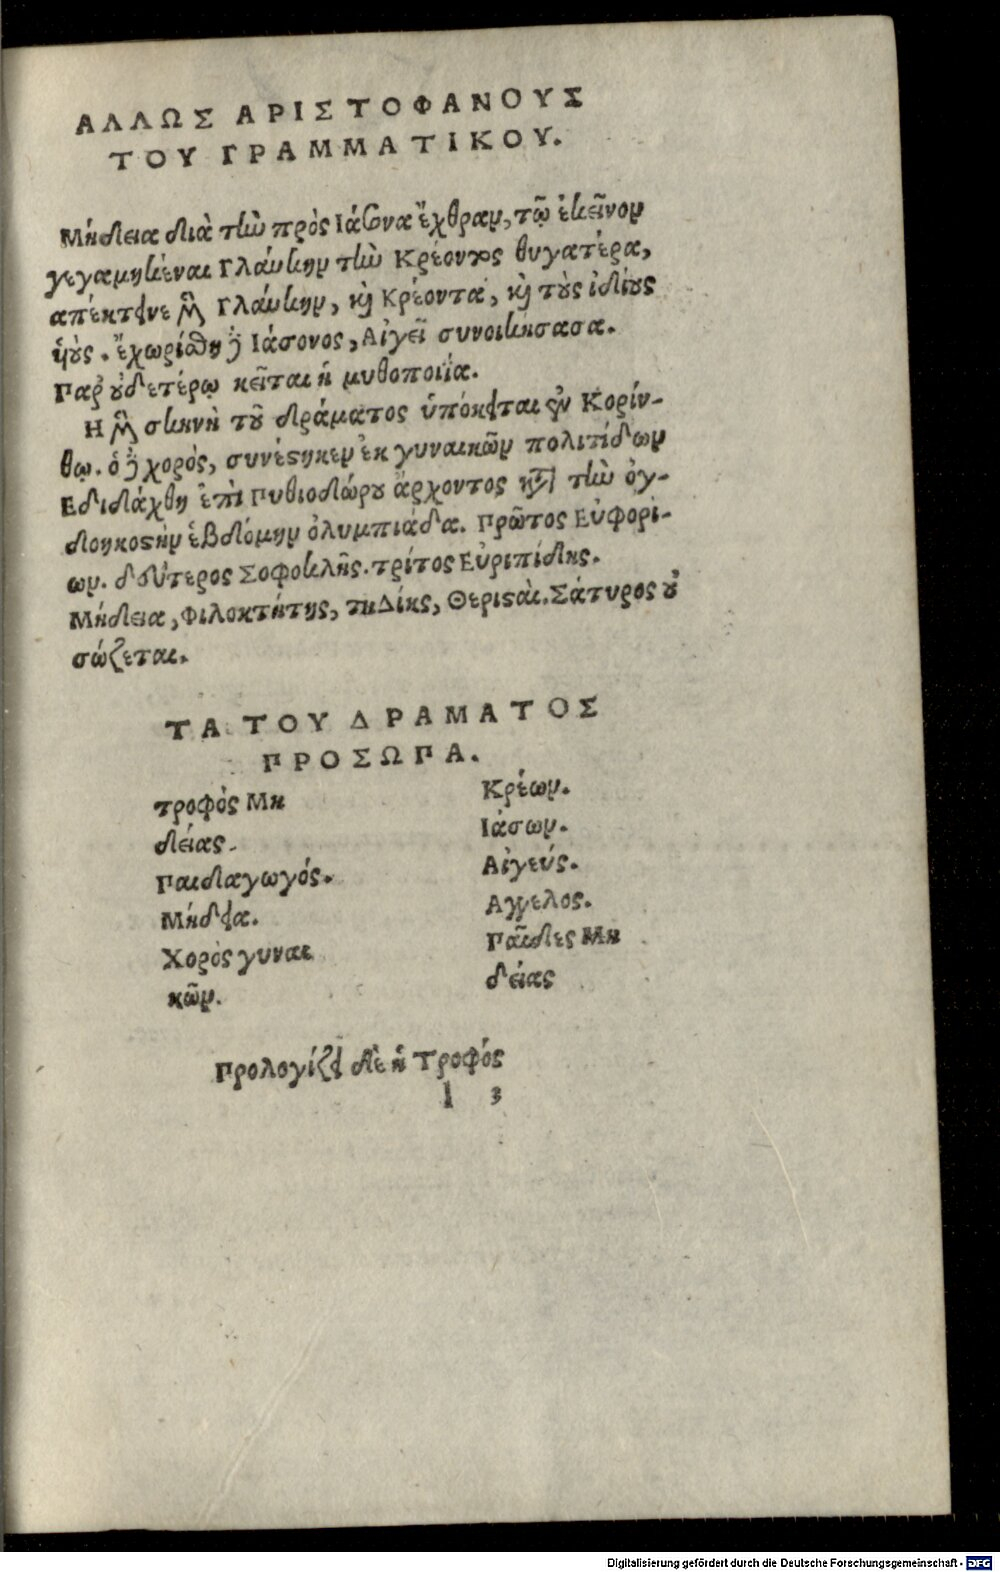 ΑΛΛΩΣ ΑΡΙΣΤΟΦΑΝΟΥΣ
ΤΟΥ ΓΡΑΜΜΑΤΙΚΟΥ.
Μήδεια διὰ τὴν πρὸς Ιάσονα ἔχθραν, τῷ ἐκεῖνον
γεγαμηκέναι Γλάυκην τὴν Κρέοντος θυγατέρα,
απέκτεινε μὲν Γλάυκην, καὶ Κρέοντα, καὶ τοὺς ἰδίους
ὑιούς. ἔχωρίσθη δὲ Ιάσονος, Αἰγεῖ συνοικήσασα.
Παρ' οὐδετέρῳ κεῖται ἡ μυθοποιΐα.
Η μὲν σκηνὴ τοῦ δράματος ὑπόκειται ἐν Κορίν-
θῳ. ὁ δὲ χορὸς, συνέστηκεν ἐκ γυναικῶν πολιτίδων
Εδιδάχθη ἐπὶ Πυθιοδώρου ἄρχοντος κατὰ τὴν ὀγ-
δοηκοστὴν ἑβδόμην ὀλυμπιάδα. Πρῶτος Εὐφορί-
ων. δεύτερος Σοφοκλῆς. τρίτος Εὐριπίδης.
Μήδεια, Φιλοκτήτης, τηΔίκς, Θερισταὶ. Σάτυρος οὐ
σώζεται.
ΤΑ ΤΟΥ ΔΡΑΜΑΤΟΣ
ΠΡΟΣΩΠΑ.
τροφὸς Μη
δείας.
Παιδαγωγός.
Μήδεια.
Χορὸς γυναι
κῶν.
Κρέων.
Ιάσων.
Αἰγεύς.
Αγγελος.
Παῖδες Μη
δείας
Προλογίζει δὲ ἡ Τροφός
l 3
Digitalisierung gefördert durch die Deutsche Forschungsgemeinschaft - DFG